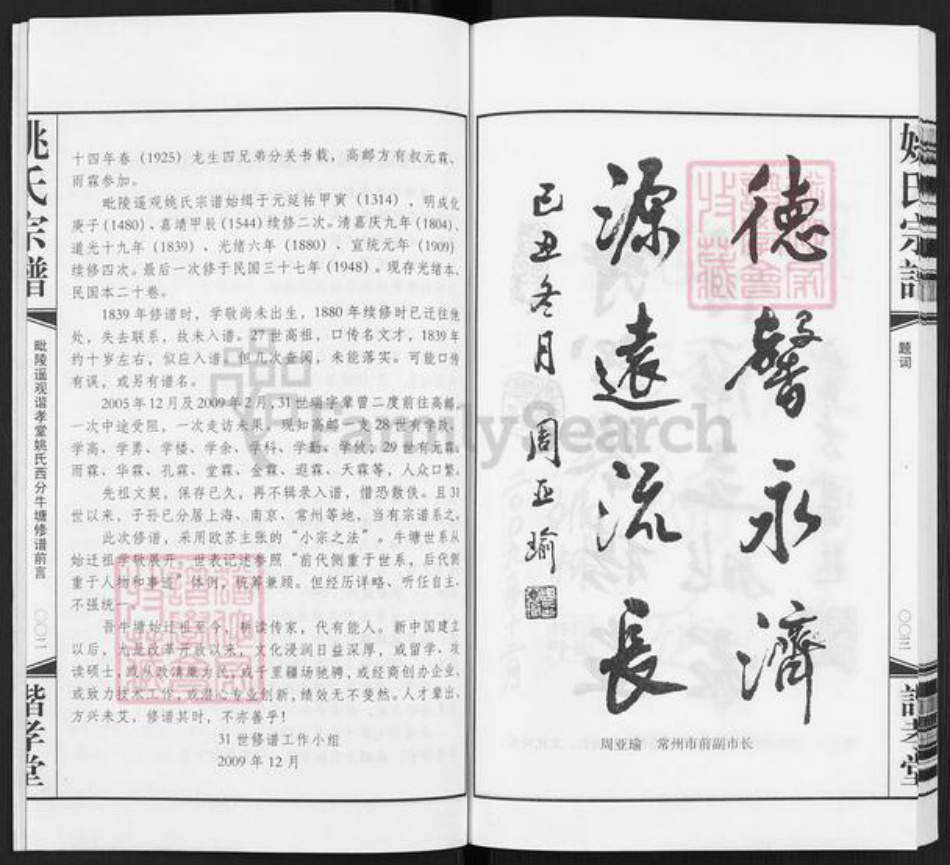 姚氏宗譜
毗陵遥观谐孝堂姚氏西分牛塘修谱前言
〇〇二
谐孝堂
十四年春（1925）龙生四兄弟分关书载，高邮方有叔元霖、
雨霖参加。
毗陵遥观姚氏宗谱始缉于元延祐甲寅（1314），明成化
庚子(1480)、嘉靖甲辰(1544)续修二次。清嘉庆九年(1804)、
道光十九年（1839）、光绪六年（1880）、宣统元年（1909）
续修四次。最后一次修于民国三十七年（1948）。现存光绪本、
民国本二十卷。
1839年修谱时，学敬尚未出生，1880年续修时已迁往他
处，失去联系，故未入谱。27世高祖，口传名文才，1839年
约十岁左右，似应入谱。但几次查阅，未能落实。可能口传
有误，或另有谱名。
2005年12月及2009年2月，31世瑞字辈曾二度前往高邮，
一次中途受阻，一次走访未果。现知高邮一支28世有学政、
学高、学勇、学楼、学余、学科、学勤、学攸；29世有元霖、
雨霖、华霖、孔霖、堂霖、金霖、遐霖、天霖等，人众口繁。
先祖文契，保存已久，再不辑录入谱，惜恐散佚。且31
世以来，子孙已分居上海、南京、常州等地，当有宗谱系之。
此次修谱，采用欧苏主张的“小宗之法”。牛塘世系从
始迁祖学敬展开，世表记述参照“前代侧重于世系，后代侧
重于人物和事迹”体例，统筹兼顾。但经历详略、听任自主，
不强统一。
吾牛塘始迁祖至今，耕读传家，代有能人。新中国建立
以后，尤是改革开放以来，文化浸润日益深厚，或留学、攻
读硕士，或从政清廉为民，或千里疆场驰骋，或经商创办企业，
或致力技术工作，或潜心专业创新，绩效无不斐然。人才辈出，
方兴未艾，修谱其时，不亦善乎！
31世修谱工作小组
2009年12月
FamilySearch
德馨永濟
源遠流長
己丑冬月 周亚瑜
周亚瑜 常州市前副市长
姚氏宗譜
题词
〇〇三
谐孝堂